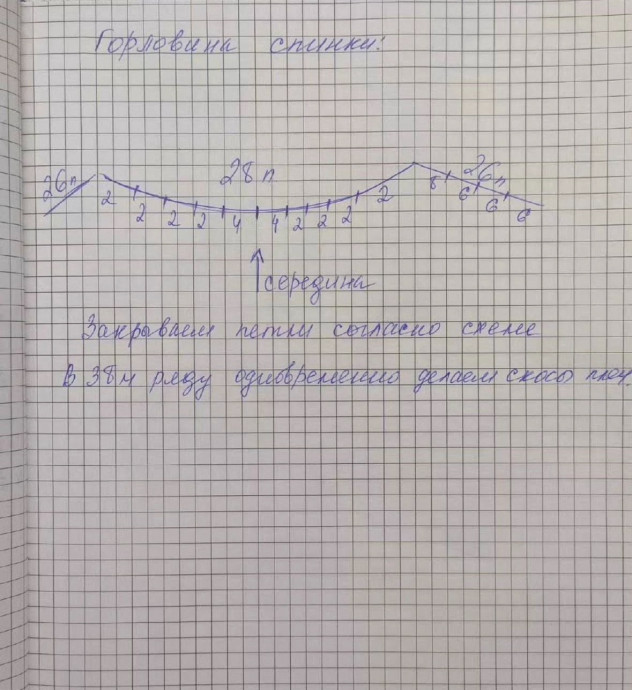 Горловина спинки:
26п 28п 26п
2 2 2 2 4 4 2 2 2 2 8 6 6 6
середина
Закрываем петли согласно схеме
В 38м ряду одновременно делаем скосы плеч.